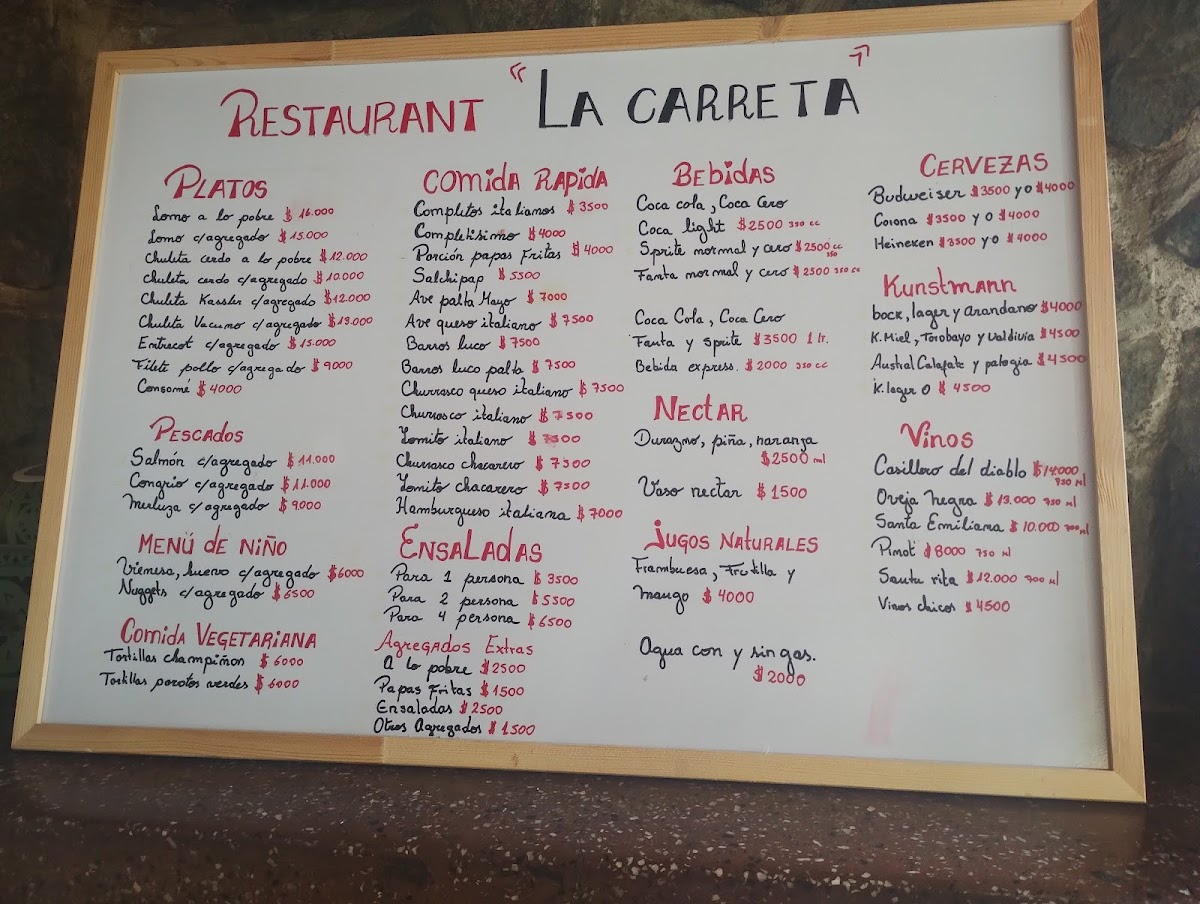 RESTAURANT "LA CARRETA"
PLATOS
Lomo a lo pobre $ 16.000
Lomo c/agregado $ 15.000
Chuleta cerdo a lo pobre $ 12.000
Chuleta cerdo c/agregado $ 10.000
Chuleta Kassler c/agregado $ 12.000
Chuleta Vacuno c/agregado $ 13.000
Entrecot c/agregado $ 15.000
Filete pollo c/agregado $ 9000
Consomé $ 4000
PESCADOS
Salmón c/agregado $ 11.000
Congrio c/agregado $ 11.000
Merluza c/agregado $ 9.000
MENÚ DE NIÑO
Vienesa, huevo c/agregado $6000
Nuggets c/agregado $ 6500
Comida VEGETARIANA
Tortillas champiñon $ 6000
Tortillas porotos verdes $ 6000
COMIDA RAPIDA
Completos italianos $ 3500
Completisimo $ 4000
Porción papas Fritas $ 4000
Salchipap $ 5500
Ave palta Mayo $ 7000
Ave queso italiano $ 7500
Barros luco $ 7500
Barros luco palta $ 7500
Churrasco queso italiano $ 7500
Churrasco italiano $ 7500
Lomito italiano $ 7500
Churrasco chacarero $ 7500
Lomito chacarero $ 7500
Hamburgueso italiana $ 7000
ENSALADAS
Para 1 persona $ 3500
Para 2 persona $ 5500
Para 4 persona $ 6500
Agregados Extras
A lo pobre $ 2500
Papas Fritas $ 1500
Ensaladas $ 2500
Otros Agregados $ 1.500
Bebidas
Coca cola, Coca Cero
Coca light $ 2500 350 cc
Sprite normal y cero $ 2500 cc
350
Fanta normal y cero $ 2500 350 cc
Coca Cola, Coca Cero
Fanta y Sprite $ 3500 1 lt.
Bebida express. $ 2000 350 cc
NECTAR
Durazno, piña, naranja
$2500 ml
Vaso nectar $ 1500
JUGOS NATURALES
Frambuesa, Frutilla y
Mango $ 4000
Agua con y sin gas.
$ 2000
CERVEZAS
Budweiser $3500 y 0 $4000
Corona $3500 y 0 $4000
Heineken $3500 y 0 $4000
Kunstmann
bock, lager y arandano $4000
K. Miel, Torobayo y Valdivia $4500
Austral Calafate y patogia $4500
K. lager 0 $ 4500
VINOS
Casillero del diablo $14.000
750 ml
Oveja Negra $ 13.000 750 ml
Santa Emiliana $ 10.000 700 ml
Pinot $ 8000 750 ml
Santa rita $ 12.000 700 ml
Vinos chicos $ 4500